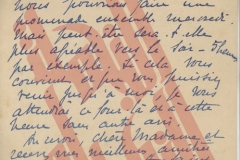 nous pourrons faire une
promenade ensemble mercredi
mais peut-être sera-t-elle
plus agréable vers le soir - 5 heures
par exemple. Si cela vous
convient et que vous puissiez
venir jusqu'à moi, je vous
attendrai ce jour-là et à cette
heure sans autre avis.
Au revoir, chère Madame et
recevez mes meilleures amitiés